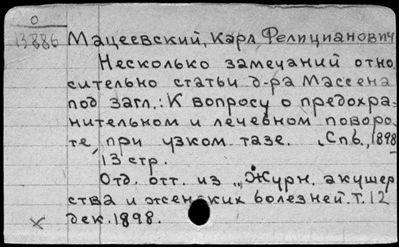 0
13886
Мацеевский, Карл Фелицианович
Несколько замечаний отно-
сительно статьи д-ра Массена
под загл.: К вопросу о предохра-
нительном и лечебном поворо-
те при узком тазе. Спб., 1898
13 стр.
Отд. отт. из „Журн. акушер
ства и женских болезней. Т. 12
дек. 1898.
x